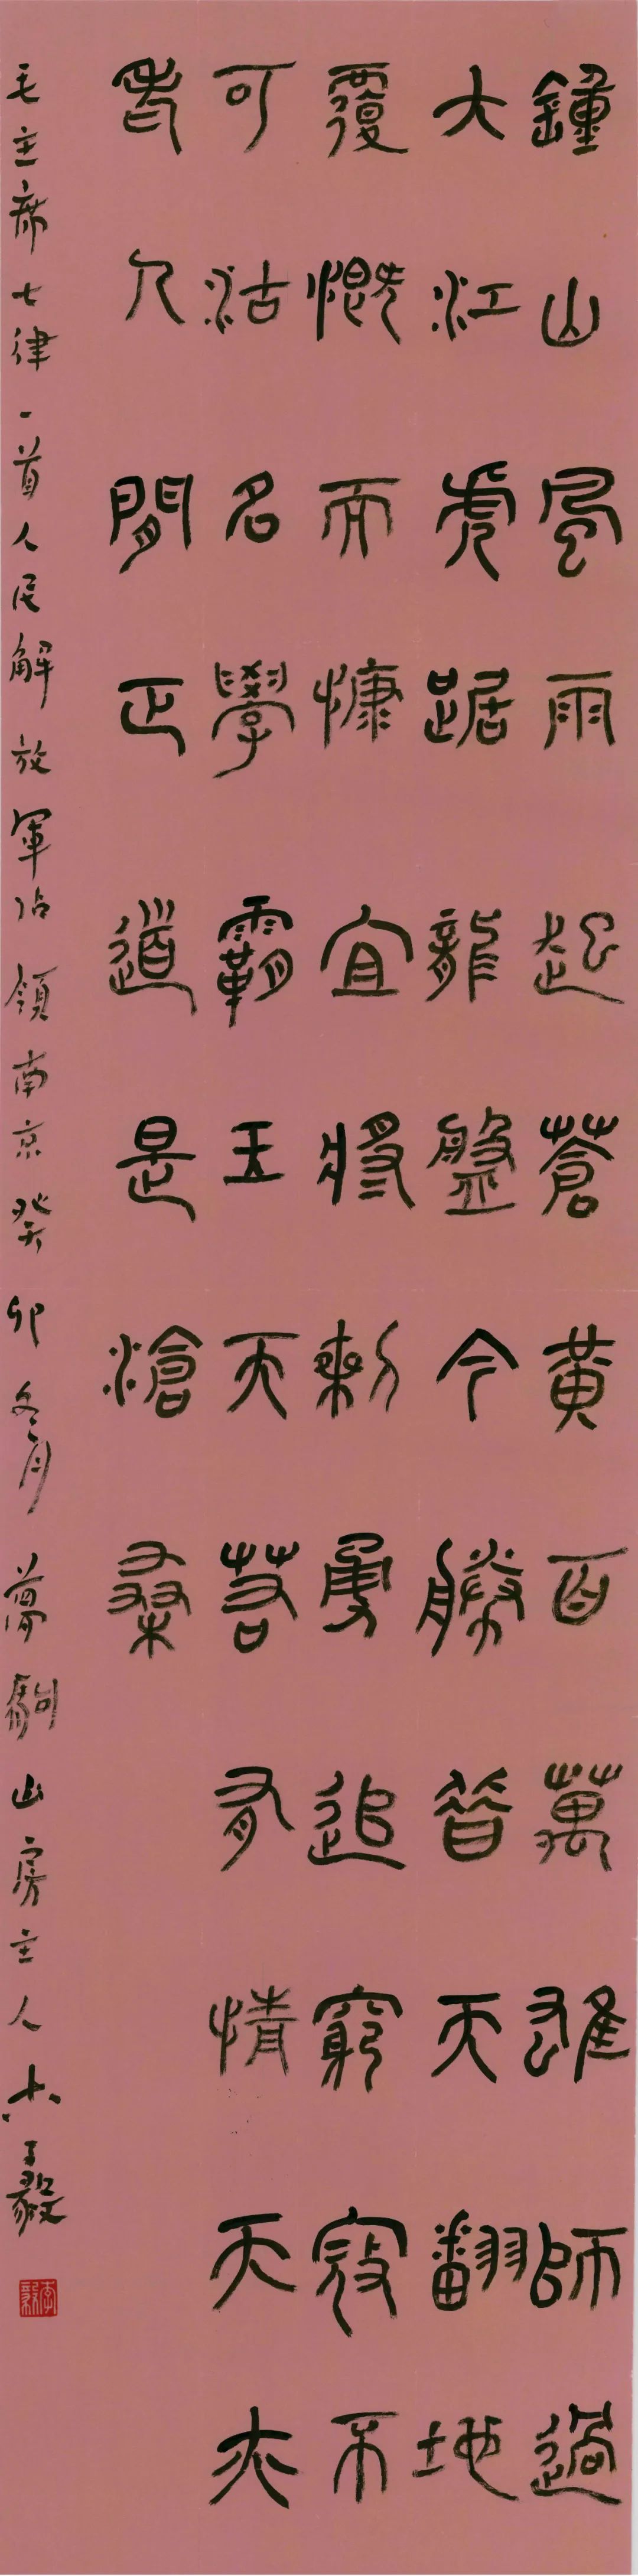 鍾山風雨起蒼黃百萬雄師過
大江虎踞龍盤今勝昔天翻地
覆慨而慷宜將剩勇追窮寇不
可沽名學霸王天若有情天亦
老人間正道是滄桑
毛主席七律一首人民解放軍佔領南京癸卯冬月駒山房主人李毅
李毅